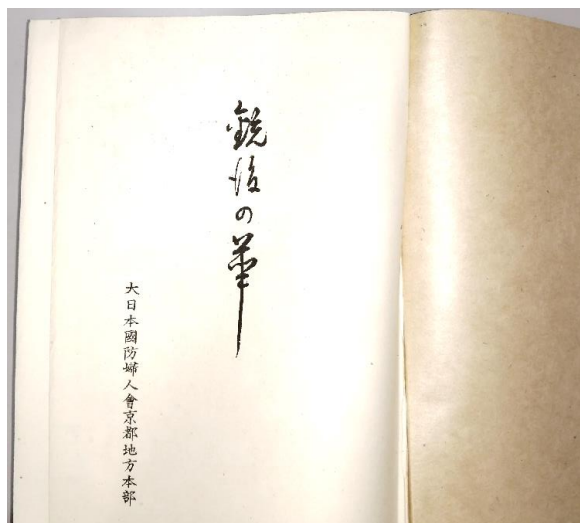 銃後の華
大日本國防婦人會京都地方本部